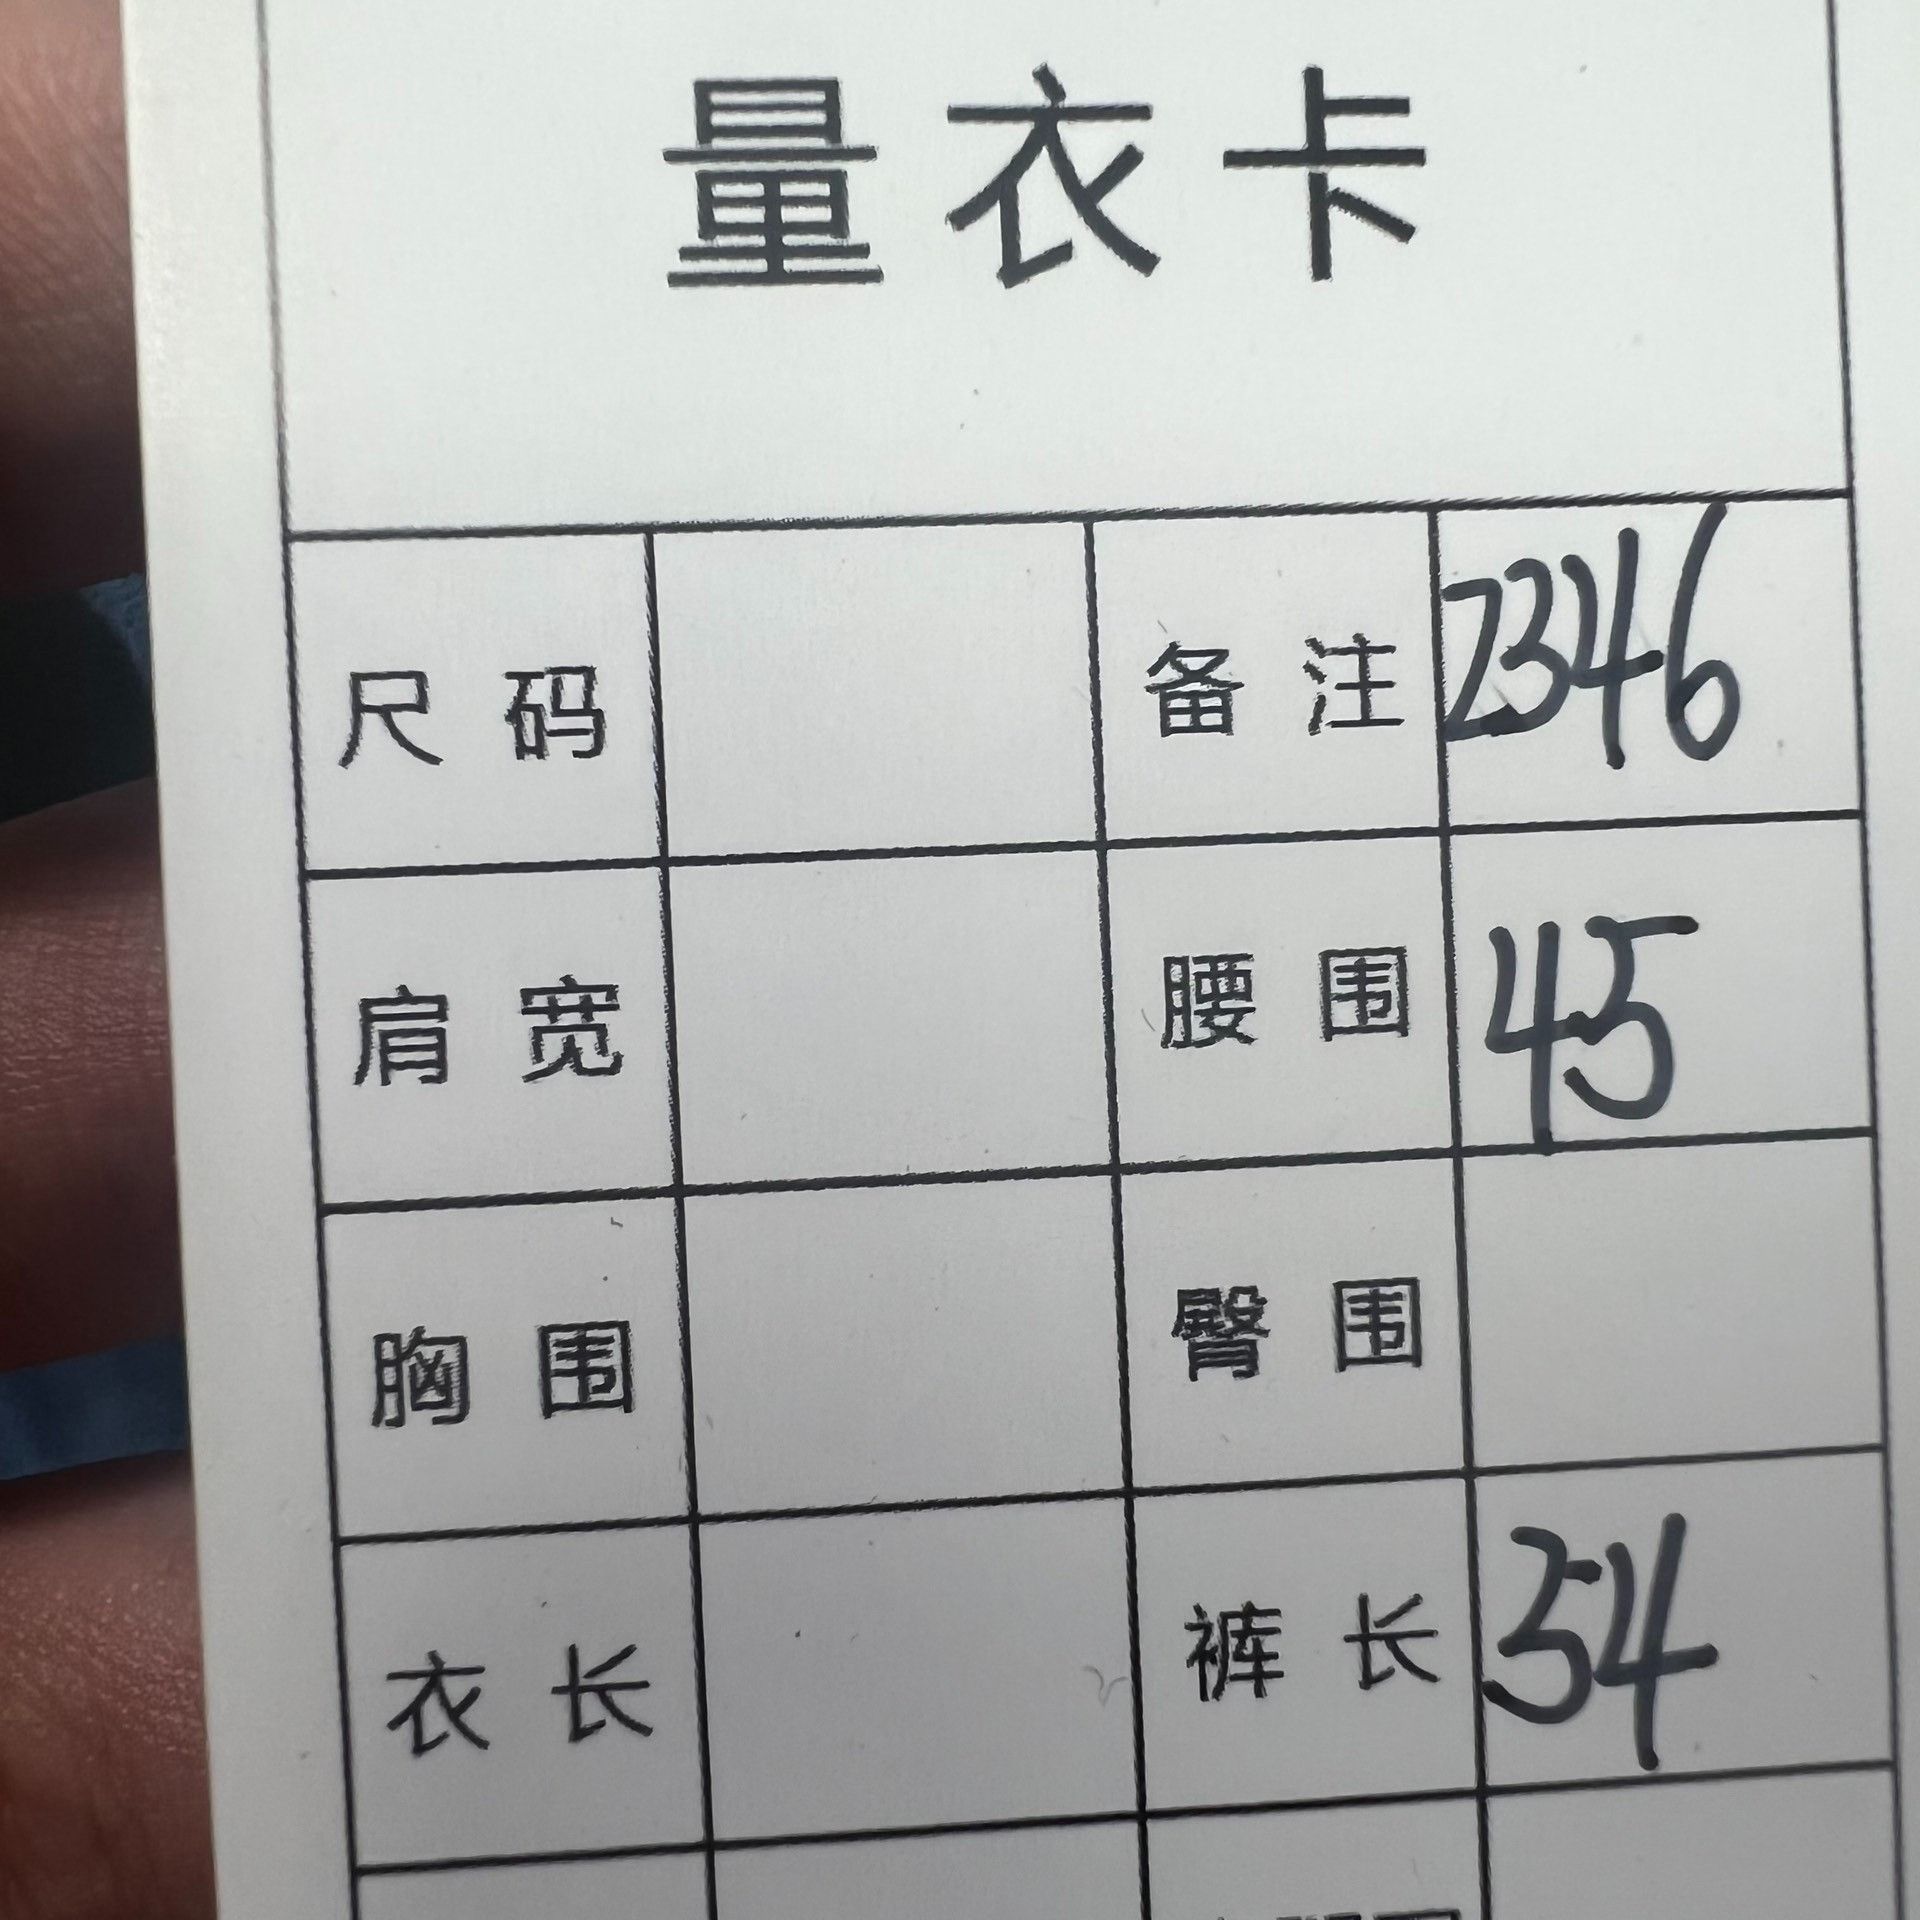 量衣卡
尺码 备注 2346
肩宽 腰围 45
胸围 臀围
衣长 裤长 54